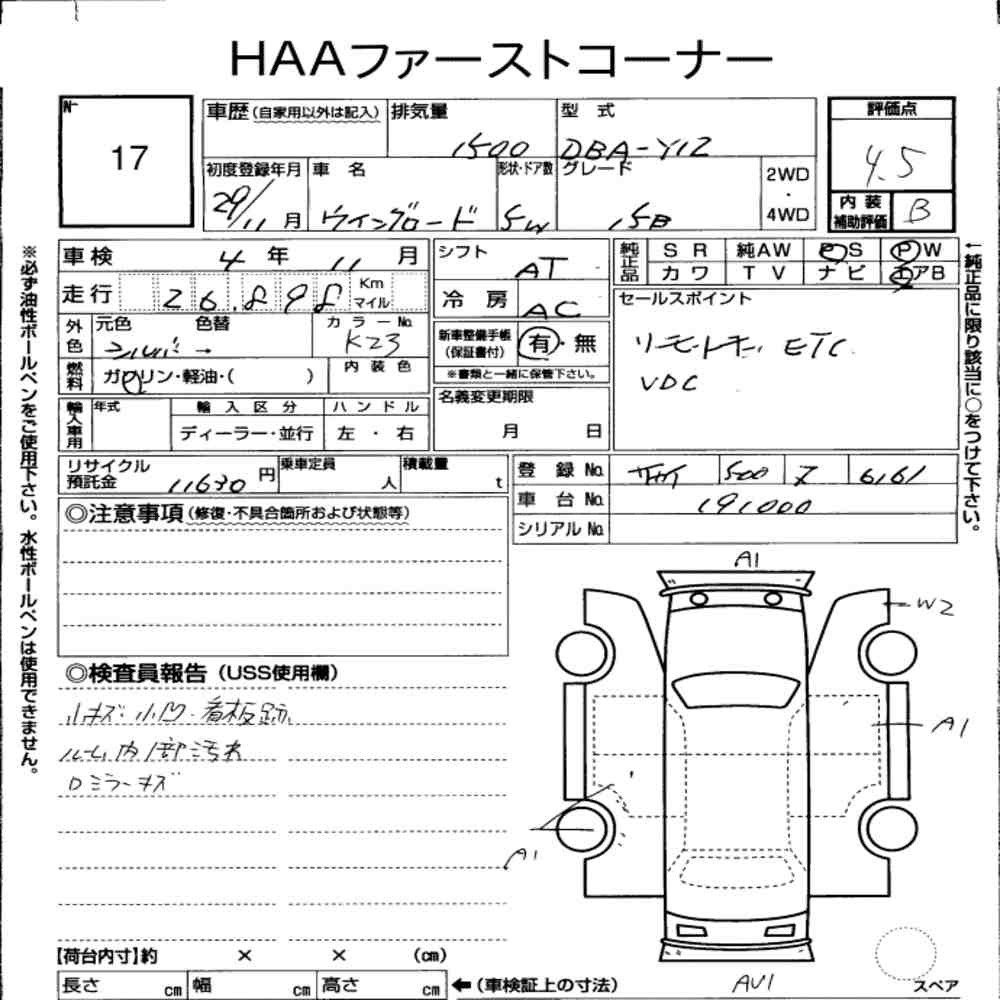 HAAファーストコーナー
№
17
車歴(自家用以外は記入) 排気量 1500
型 式 DBA-Y12
評価点 4.5
初度登録年月 29/11月
車 名 ウイングロード
形状・ドア数 5W
グレード 15B
2WD
・
4WD
内装補助評価 B
車検 4年 11月
走行 26.898 Km マイル
外色
元色 シルバー
色替 →
カラーNo. K23
燃料
ガソリン・軽油・( )
内装色
輸入車用
年式
輸入区分
ディーラー・並行
ハンドル
左・右
シフト AT
冷房 AC
新車整備手帳
(保証書付)
有・無
※書類と一緒に保管下さい。
名義変更期限
月 日
純正品
SR 純AW PS PW
カワ TV ナビ エアB
セールスポイント
リモ・レキー ETC
VDC
←純正品に限り該当に○をつけて下さい。
※必ず油性ボールペンをご使用下さい。水性ボールペンは使用できません。
リサイクル預託金 11630円
乗車定員 人
積載量 t
登録No. 500 ヌ 6161
車台No. 191000
シリアルNo.
◎注意事項(修復・不具合箇所および状態等)
◎検査員報告(USS使用欄)
小キズ・小凹・看板跡
ルーム内1部汚れ
Dミラーキズ
A1
W2
A1
A1
AU1
【荷台内寸】約 × × (cm)
長さ cm 幅 cm 高さ cm ←(車検証上の寸法)
スペア